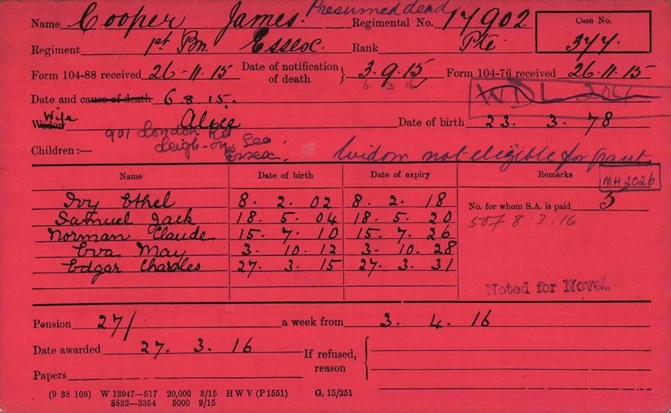 Name Cooper James. Presumed dead Regimental No. 17902 Case No.
Regiment 1st Bn Essex Rank Pte 377.
Form 104-88 received 26.11.15 Date of notification of death 3.9.15 Form 104-76 received 26.11.15
6 3 16
Date and cause of death 6.8.15. WDL
Wife
Widow Alice Date of birth 23. 3. 78
901 London Rd
Leigh-on-Sea
Essex.
Children:— Widow not eligible for grant
Name Date of birth Date of expiry Remarks MH2026
Ivy Ethel 8. 2. 02 8. 2. 18 No. for whom S.A. is paid 5
Samuel Jack 18. 5. 04 18. 5. 20 8.3.16
Norman Claude 15. 7. 10 15. 7. 26
Eva May 3. 10. 12 3. 10. 28
Edgar Charles 27. 3. 15 27. 3. 31
Noted for Novr.
Pension 27/ a week from 3. 4. 16
Date awarded 27. 3. 16 If refused, reason
Papers
(9 38 108) W 13947—517 20,000 3/15 H W V (P 1551) G. 15/251
8832—3354 5000 9/15